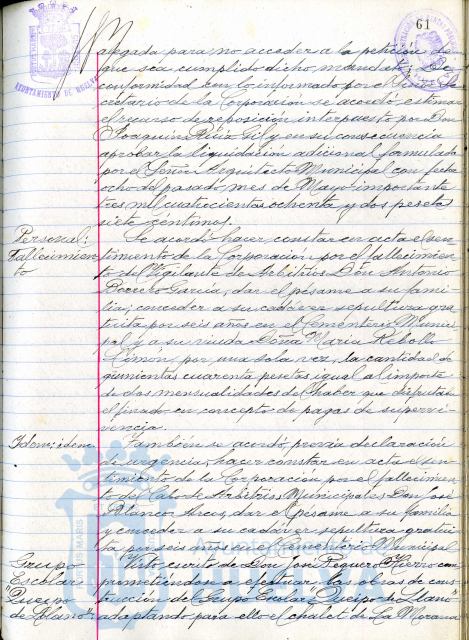 61
AYUNTAMIENTO DE HUELVA
alegada para no acceder a la petición de
que sea cumplido dicho mandato, y de
conformidad con lo informado por el Señor Se-
cretario de la Corporación se acordó, estimar
el recurso de reposición interpuesto por Don
Joaquín Ruiz Gil y en su consecuencia
aprobar la liquidación adicional formulada
por el Señor Arquitecto Municipal con fecha
ocho del pasado mes de Mayo importante
tres mil cuatrocientas ochenta y dos pesetas
siete céntimos.
Personal:
Fallecimien-
to
Se acordó hacer constar en acta el sen-
timiento de la Corporación por el fallecimien-
to del Vigilante de Arbitrios Don Antonio
Borrero García, dar el pésame a su fami-
lia, conceder a su cadáver sepultura gra-
tuita por seis años en el Cementerio Munici-
pal y a su viuda Doña María Rebollo
Limón, por una sola vez, la cantidad de
quinientas cuarenta pesetas igual al importe
de dos mensualidades de haber que disfrutaba
el finado en concepto de pagas de supervi-
vencia.
Idem: idem
También se acordó, previa declaración
de urgencia, hacer constar en acta el sen-
timiento de la Corporación por el fallecimien-
to del Cabo de Arbitrios Municipales Don José
Blanco Arcos, dar el pésame a su familia
y conceder a su cadáver sepultura gratui-
ta por seis años en el Cementerio Municipal
Grupo
Escolar
"Queipo
de Llano":
Visto escrito de Don José Feguero Hierro com-
prometiéndose a efectuar las obras de cons-
trucción del Grupo Escolar "Queipo de Llano"
adaptando para ello el chalet de La Morana